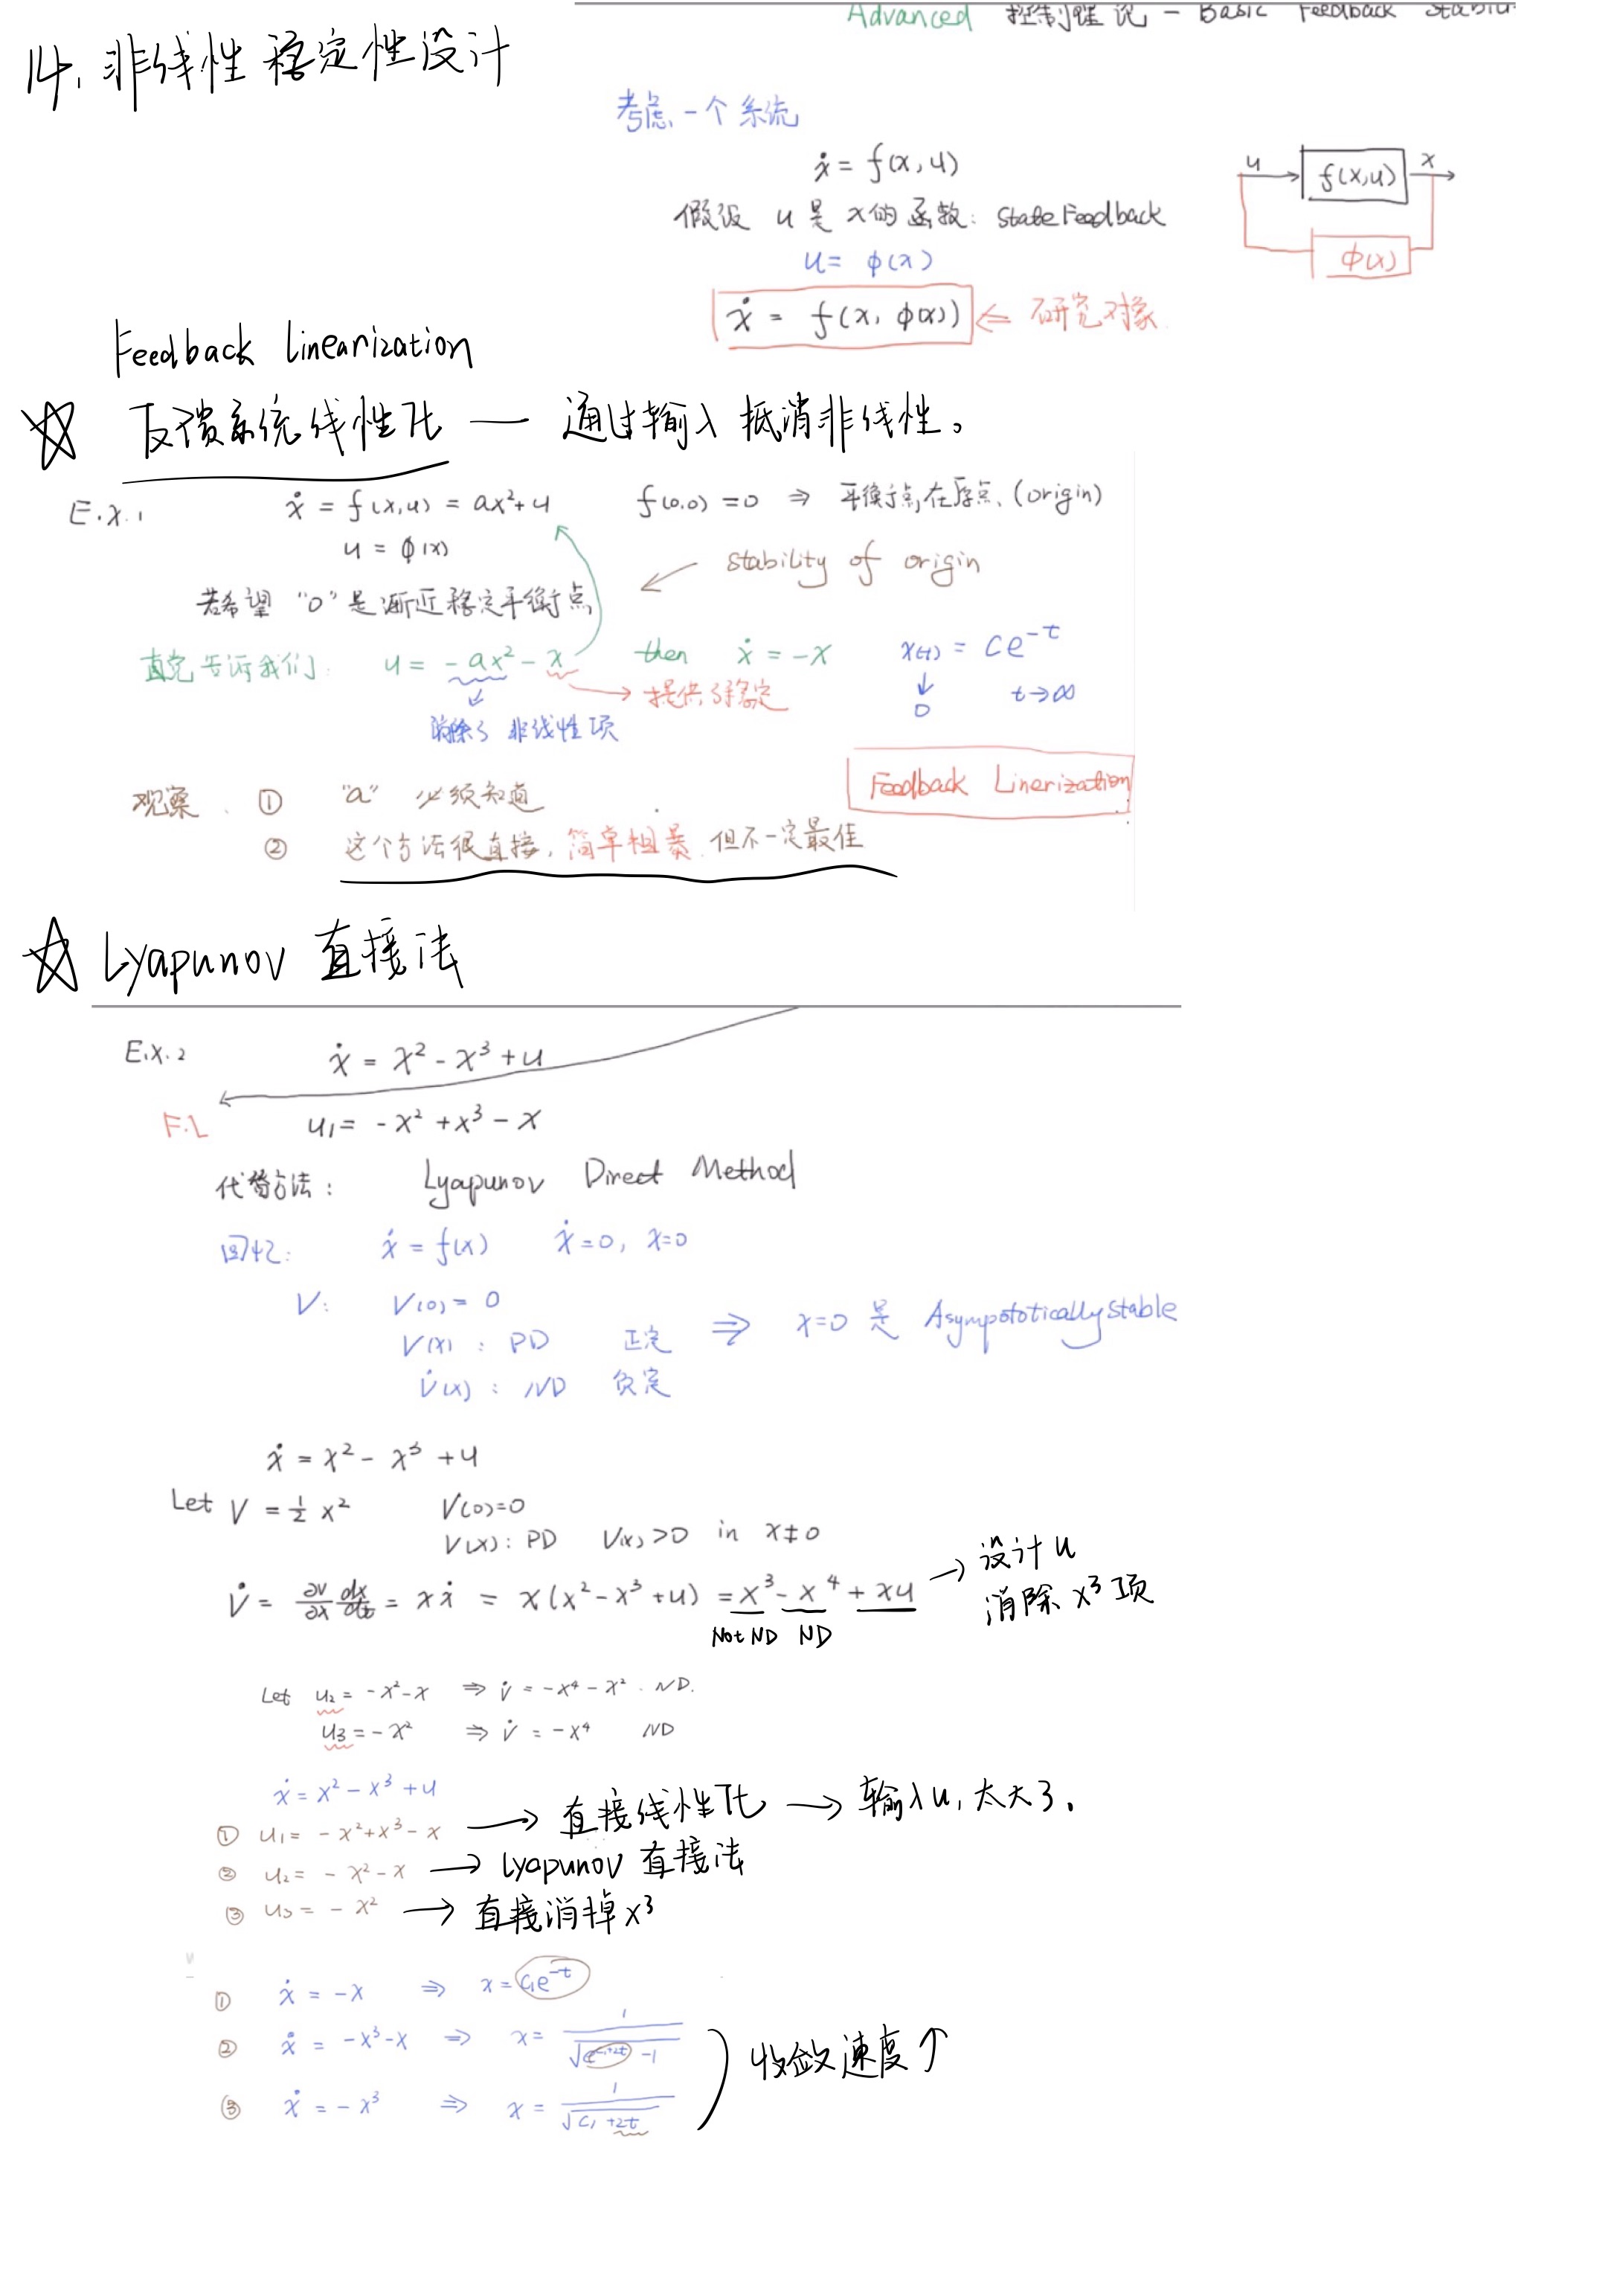 Advanced 控制理论 - Basic Feedback
14. 非线性稳定性设计
考虑一个系统
ẋ = f(x, u)
假设 u 是 x 的函数: State Feedback
u = φ(x)
ẋ = f(x, φ(x)) ⇐ 研究对象
u → f(x,u) x →
φ(x)
Feedback Linearization
☆ 反馈系统线性化 — 通过输入抵消非线性。
E.X.1 ẋ = f(x,u) = ax² + u f(0,0) = 0 ⇒ 平衡点在原点 (origin)
u = φ(x)
← Stability of origin
若希望 "0" 是渐近稳定平衡点
直觉告诉我们: u = -ax² - x then ẋ = -x x(t) = Ce^{-t}
↓ 0 t→∞
→ 提供了稳定
消除了非线性项
Feedback Linerization
观察 ① "a" 必须知道
② 这个方法很直接, 简单粗暴, 但不一定最佳
☆ Lyapunov 直接法
E.X.2 ẋ = x² - x³ + u
F.L u₁ = -x² + x³ - x
代替方法: Lyapunov Direct Method
回忆: ẋ = f(x) ẋ = 0, x = 0
V: V(0) = 0
V(x) : PD 正定 ⇒ x=0 是 Asympototically Stable
V̇(x) : ND 负定
ẋ = x² - x³ + u
Let V = ½ x² V(0)=0
V(x): PD V(x) > 0 in x ≠ 0
V̇ = ∂V/∂x dx/dt = xẋ = x(x² - x³ + u) = x³ - x⁴ + xu → 设计 u
消除 x³ 项
Not ND ND
Let u₂ = -x² - x ⇒ V̇ = -x⁴ - x² . ND.
u₃ = -x² ⇒ V̇ = -x⁴ ND
ẋ = x² - x³ + u
① u₁ = -x² + x³ - x → 直接线性化 → 输入u₁ 太大了.
② u₂ = -x² - x → Lyapunov 直接法
③ u₃ = -x² → 直接消掉 x³
① ẋ = -x ⇒ x = C₁e^{-t}
② ẋ = -x³ - x ⇒ x = 1/√(e^{-1+2t} - 1)
③ ẋ = -x³ ⇒ x = 1/√(C₁ + 2t)
) 收敛速度↑